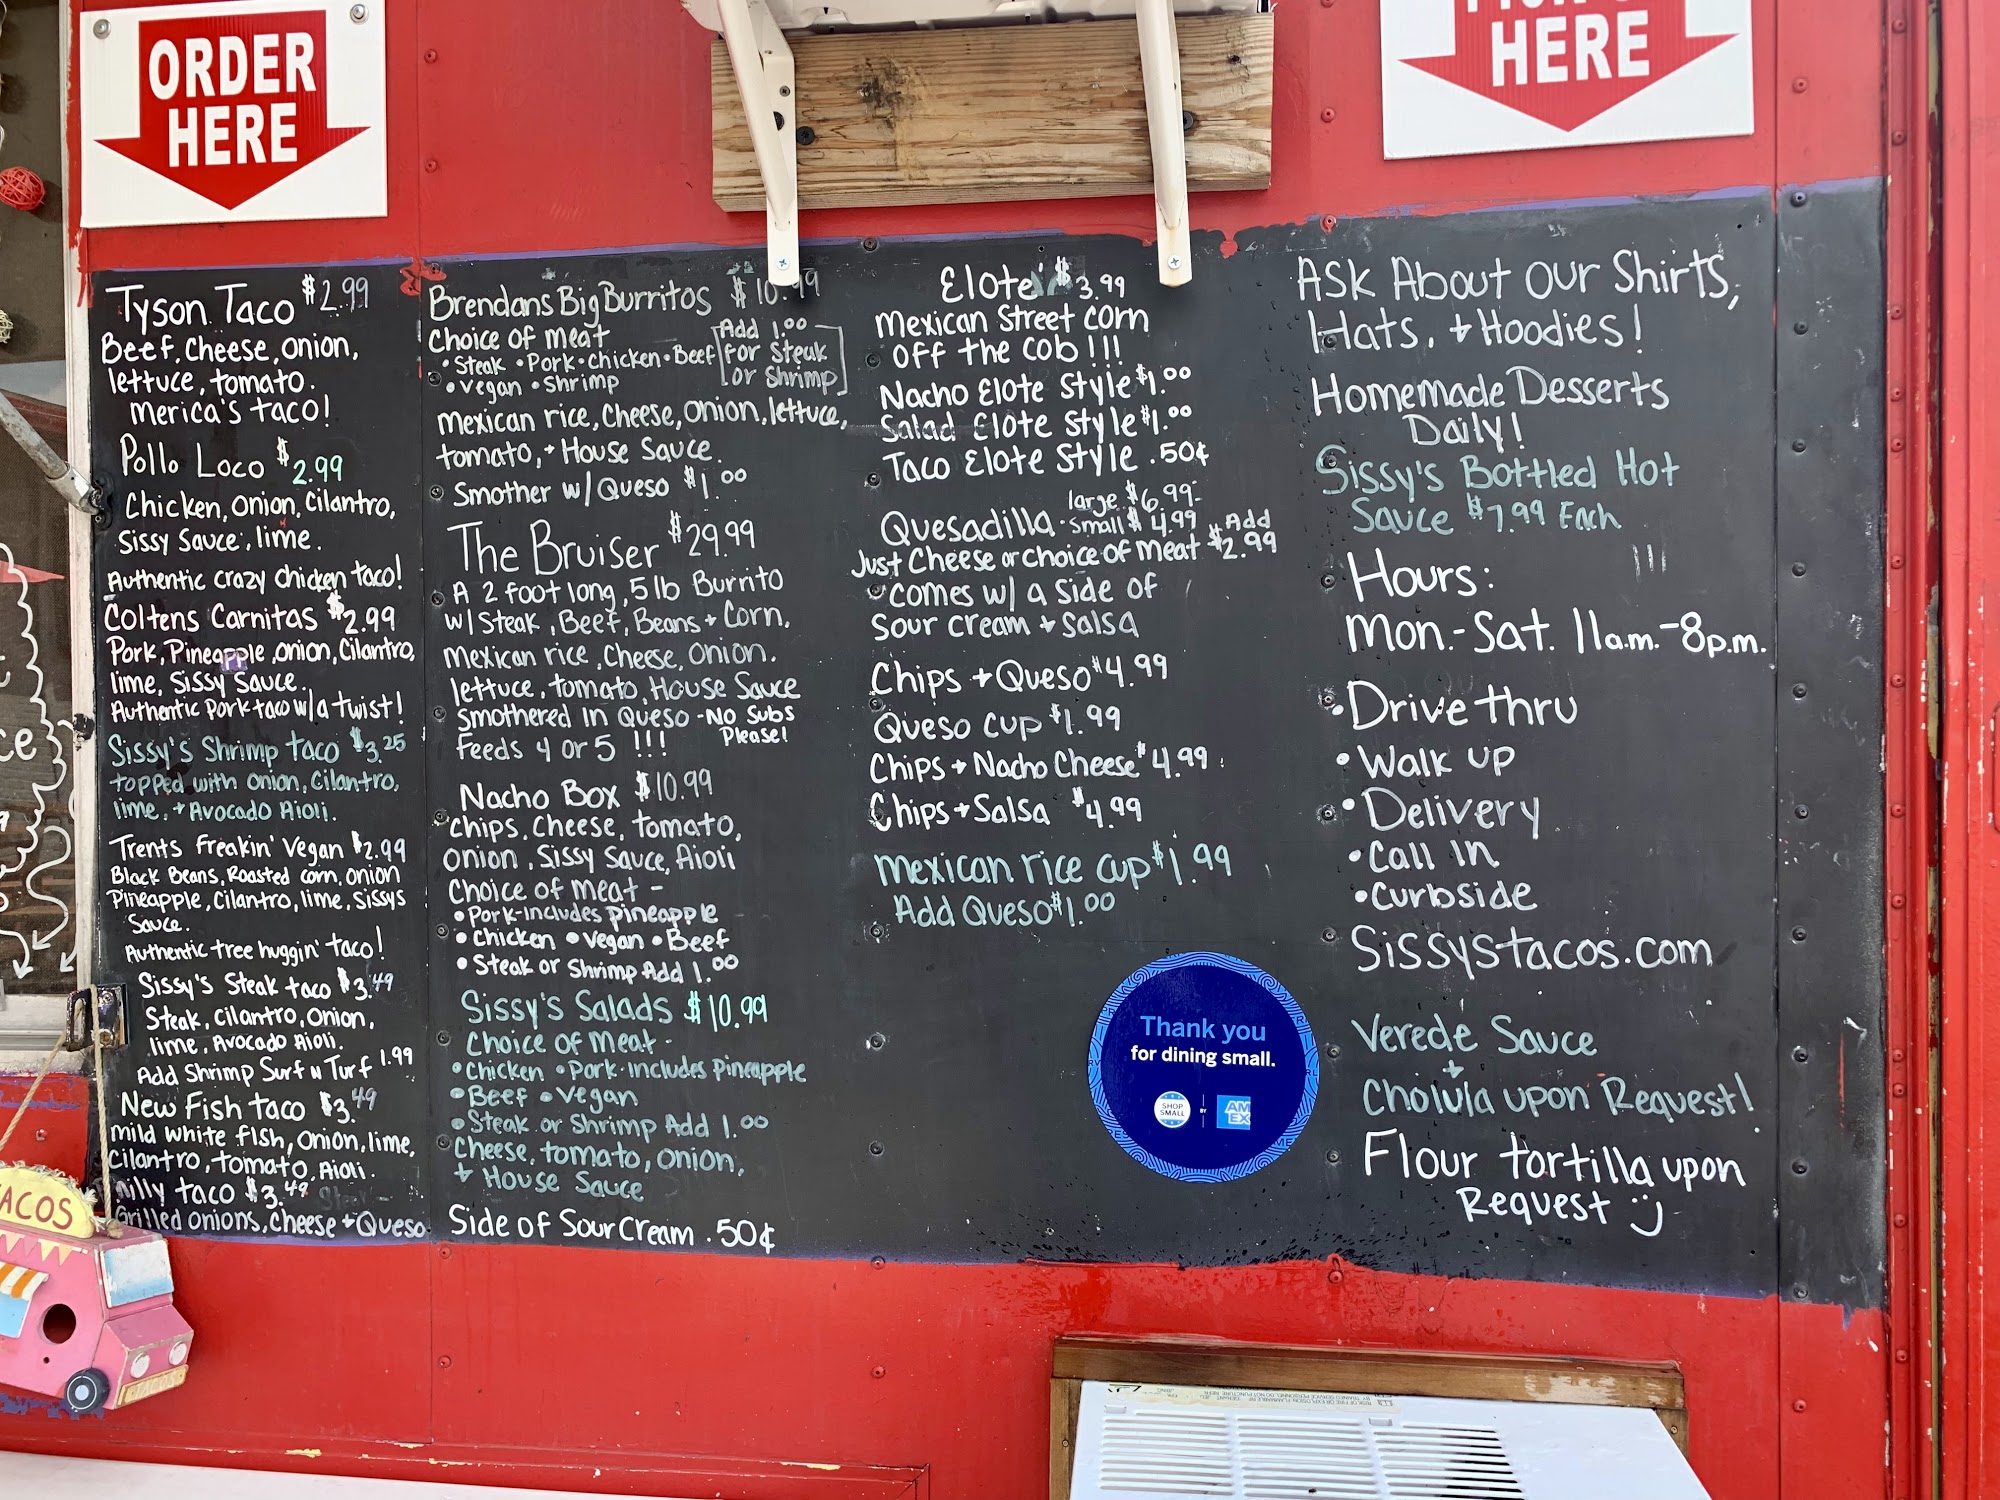 ORDER
HERE
HERE
Tyson Taco $2.99
Beef, Cheese, Onion,
lettuce, tomato.
Merica's taco!
Pollo Loco $2.99
Chicken, Onion, Cilantro,
Sissy Sauce, lime.
Authentic crazy chicken taco!
Coltens Carnitas $2.99
Pork, Pineapple, Onion, Cilantro,
lime, Sissy Sauce.
Authentic Pork taco w/a twist!
Sissy's Shrimp taco $3.25
topped with Onion, Cilantro,
lime, + Avocado Aioli.
Trents Freakin' Vegan $2.99
Black Beans, Roasted corn, onion
Pineapple, Cilantro, lime, Sissys
Sauce.
Authentic tree huggin' taco!
Sissy's Steak taco $3.49
Steak, Cilantro, Onion,
lime, Avocado Aioli.
Add Shrimp Surf N Turf 1.99
New Fish taco $3.49
mild white fish, Onion, lime,
Cilantro, tomato, Aioli.
taco $3.49
Grilled onions, Cheese + Queso
Brendans Big Burritos $10.99
Choice of meat
• Steak • Pork • Chicken • Beef
• Vegan • Shrimp
Add 1.00
for Steak
or Shrimp
Mexican rice, Cheese, Onion, lettuce,
tomato, + House Sauce.
Smother w/ Queso $1.00
The Bruiser $29.99
A 2 foot long, 5 lb Burrito
w/ Steak, Beef, Beans + Corn,
Mexican rice, Cheese, Onion.
lettuce, tomato, House Sauce
Smothered in Queso - No Subs
Please!
Feeds 4 or 5 !!!
Nacho Box $10.99
Chips, Cheese, tomato,
Onion, Sissy Sauce, Aioli
Choice of meat -
• Pork-includes pineapple
• Chicken • Vegan • Beef
• Steak or Shrimp Add 1.00
Sissy's Salads $10.99
Choice of meat -
• Chicken • Pork-includes Pineapple
• Beef • Vegan
• Steak or Shrimp Add 1.00
Cheese, tomato, Onion,
+ House Sauce
Side of Sour Cream .50¢
Elote $3.99
Mexican Street corn
off the cob!!!
Nacho Elote Style $1.00
Salad Elote Style $1.00
Taco Elote Style .50¢
large $6.99
Quesadilla - small $4.99
Just Cheese or choice of meat Add $2.99
comes w/ a side of
sour cream + salsa
Chips + Queso $4.99
Queso cup $1.99
Chips + Nacho Cheese $4.99
Chips + Salsa $4.99
Mexican rice cup $1.99
Add Queso $1.00
Thank you
for dining small.
SHOP
SMALL
BY
AM
EX
Ask About our Shirts,
Hats, + Hoodies!
Homemade Desserts
Daily!
Sissy's Bottled Hot
Sauce $7.99 Each
Hours:
Mon.-Sat. 11a.m.-8p.m.
• Drive thru
• Walk up
• Delivery
• Call In
• Curbside
Sissystacos.com
Verede Sauce
+
Cholula upon Request!
Flour tortilla upon
Request
TACOS